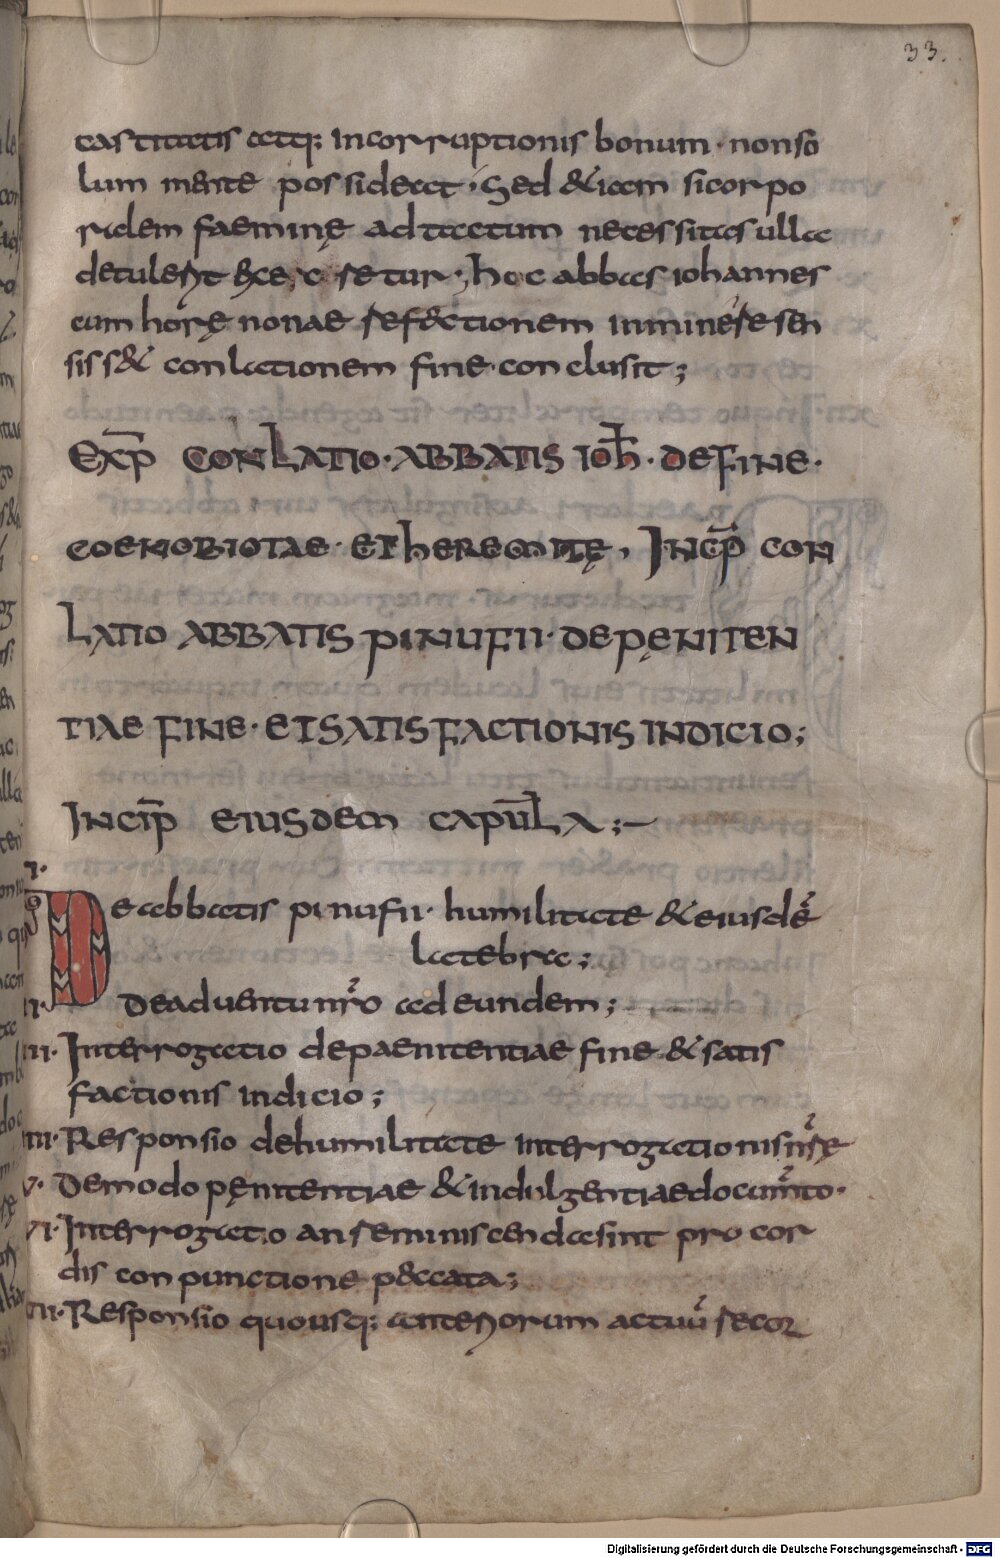 33.
castitatis atq; incorruptionis bonum· nonso
lum mente possideat· Sed &iam sicorpo
ridem faeminę ad tactum necessitas ulla
detulerit
hoc abbas iohannes
cum horę nonae refectionem inminere sen
siss& conlationem fine conclusit;
EXP̄ CONLATIO· ABBATIS IOH̄· DE FINE·
COENOBIOTAE· ET HEREMITĘ, INCP̄ CON
LATIO ABBATIS PINUFII· DE PĘNITEN
TIAE FINE· ET SATISFACTIONIS INDICIO;
INCIP̄ EIUSDEM CAPUL̄A;—
I·
De abbatis pinufii· humilitate &eiusdē
latebra;
II· De aduentu nr̄o ad eundem;
III· Interrogatio de paenitentiae fine &satis
factionis indicio;
IIII· Responsio dehumilitate interrogationis nr̄ę
V· Demodo pęnitentiae &indulgentiae docum̄to·
VI· Interrogatio an reminiscenda sint pro cor
dis conpunctione peccata;
VII· Responsio quousq; anteriorum actuū recor
Digitalisierung gefördert durch die Deutsche Forschungsgemeinschaft - DFG